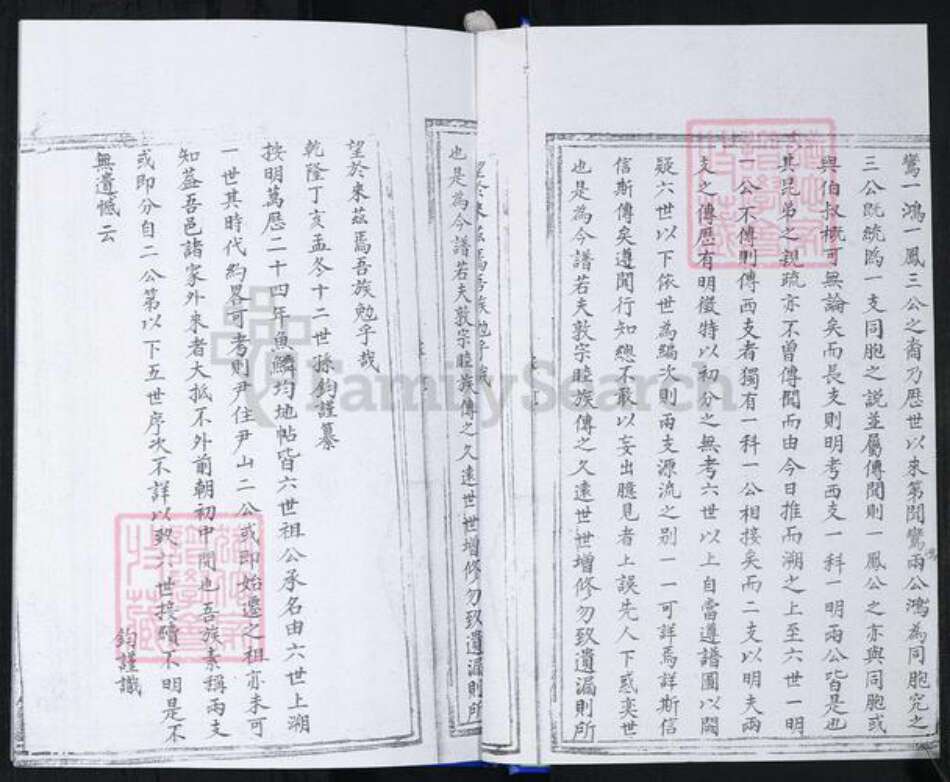 鸞一鴻一鳳三公之裔乃歷世以來第聞鸞兩公鴻為同胞究之
三公既統為一支同胞之說並屬傳聞則一鳳公之亦與同胞或
與伯叔概可無論矣而長支則明考西支一科一明兩公皆是也
其昆弟之親疏亦不曾傳聞而由今日推而溯之上至六世一明
一公不傳則傳西支者獨有一科一公相接矣而二支以明夫兩
支之傳歷有明徵特以初分之無考六世以上自當遵譜圖以闕
疑六世以下依世為編次則兩支源流之別一一可詳焉詳斯信
信斯傳矣遵聞行知總不敢以妄出臆見者上誤先人下惑奕世
也是為今譜若夫敦宗睦族傳之久遠世世增修勿致遺漏則所
望於來茲焉吾族勉乎哉
也是為今譜若夫敦宗睦族傳之久遠世世增修勿致遺漏則所
望於來茲焉吾族勉乎哉
乾隆丁亥孟冬十二世孫鈞謹纂
按明萬歷二十四年魚鱗均地帖皆六世祖公承名由六世上溯
一世其時代約畧可考則尹住尹山二公或即始遷之祖亦未可
知蓋吾邑諸家外來者大抵不外前朝初中間也吾族素稱兩支
或即分自二公第以下五世序次不詳以致六世接續不明是不
無遺憾也云
鈞謹識
FamilySearch